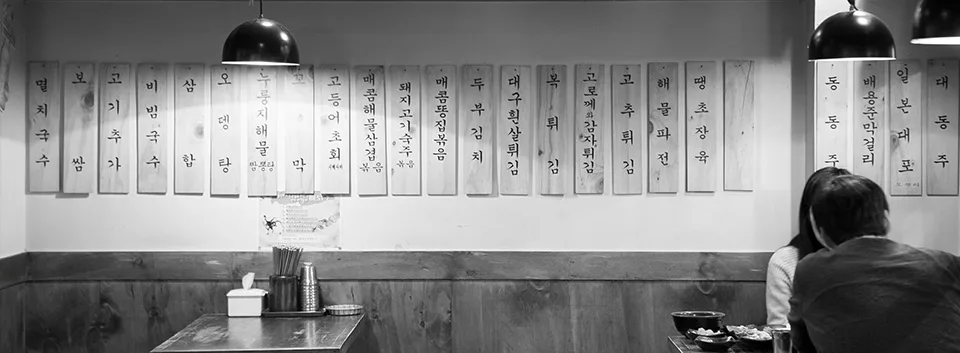 멸치국수
보쌈
고기추가
비빔국수
삼합
오뎅탕
누룽지해물
짬뽕탕
꼬막
고등어초회
매콤해물삼겹
볶음
돼지고기숙주
볶음
매콤똥집볶음
두부김치
대구흰살튀김
복튀김
고로께와감자튀김
고추튀김
해물파전
땡초장육
동동주
배용준막걸리
일본대포
대동주